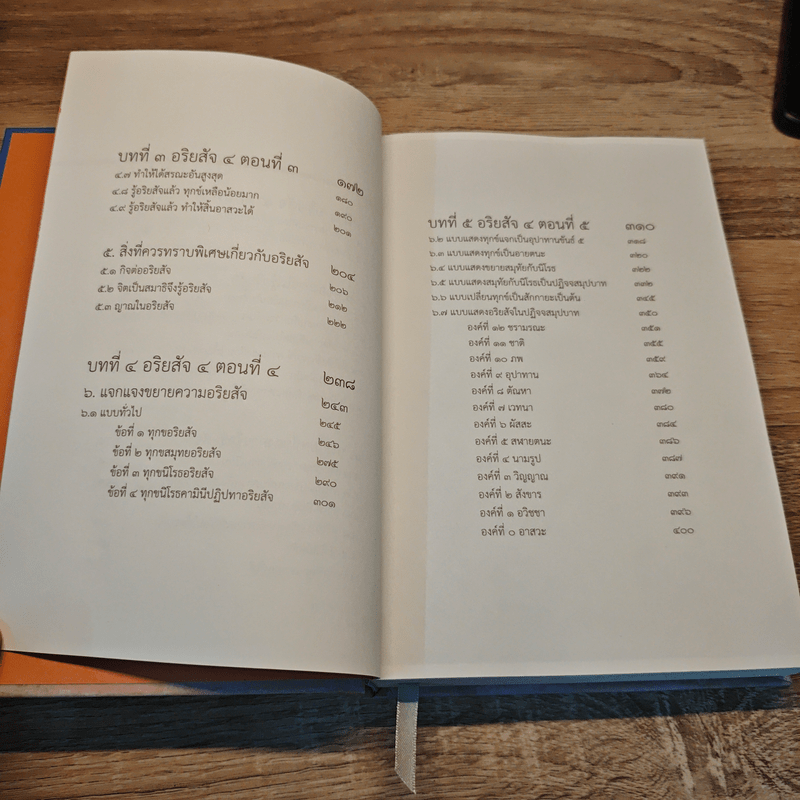 บทที่ ๓ อริยสัจ ๔ ตอนที่ ๓ ๑๗๒
๔.๗ ทำให้ได้สรณะอันสูงสุด ๑๘๐
๔.๘ รู้อริยสัจแล้ว ทุกข์เหลือน้อยมาก ๑๙๐
๔.๙ รู้อริยสัจแล้ว ทำให้สิ้นอาสวะได้ ๒๐๑
๕. สิ่งที่ควรทราบพิเศษเกี่ยวกับอริยสัจ ๒๐๔
๕.๑ กิจต่ออริยสัจ ๒๐๖
๕.๒ จิตเป็นสมาธิจึงรู้อริยสัจ ๒๑๒
๕.๓ ญาณในอริยสัจ ๒๒๒
บทที่ ๔ อริยสัจ ๔ ตอนที่ ๔ ๒๓๘
๖. แจกแจงขยายความอริยสัจ ๒๔๓
๖.๑ แบบทั่วไป ๒๔๕
ข้อที่ ๑ ทุกขอริยสัจ ๒๔๖
ข้อที่ ๒ ทุกขสมุทยอริยสัจ ๒๗๕
ข้อที่ ๓ ทุกขนิโรธอริยสัจ ๒๙๐
ข้อที่ ๔ ทุกขนิโรธคามินีปฏิปทาอริยสัจ ๓๐๑
บทที่ ๕ อริยสัจ ๔ ตอนที่ ๕ ๓๑๐
๖.๒ แบบแสดงทุกข์แจกเป็นอุปาทานขันธ์ ๕ ๓๑๘
๖.๓ แบบแสดงทุกข์เป็นอายตนะ ๓๒๐
๖.๔ แบบแสดงขยายสมุทัยกับนิโรธ ๓๒๒
๖.๕ แบบแสดงสมุทัยกับนิโรธเป็นปฏิจจสมุปบาท ๓๓๒
๖.๖ แบบเปลี่ยนทุกข์เป็นสักกายะเป็นต้น ๓๔๕
๖.๗ แบบแสดงอริยสัจในปฏิจจสมุปบาท ๓๕๐
องค์ที่ ๑๒ ชรามรณะ ๓๕๑
องค์ที่ ๑๑ ชาติ ๓๕๕
องค์ที่ ๑๐ ภพ ๓๕๙
องค์ที่ ๙ อุปาทาน ๓๖๔
องค์ที่ ๘ ตัณหา ๓๗๒
องค์ที่ ๗ เวทนา ๓๘๐
องค์ที่ ๖ ผัสสะ ๓๘๔
องค์ที่ ๕ สฬายตนะ ๓๘๖
องค์ที่ ๔ นามรูป ๓๘๗
องค์ที่ ๓ วิญญาณ ๓๙๑
องค์ที่ ๒ สังขาร ๓๙๓
องค์ที่ ๑ อวิชชา ๓๙๖
องค์ที่ ๐ อาสวะ ๔๐๐